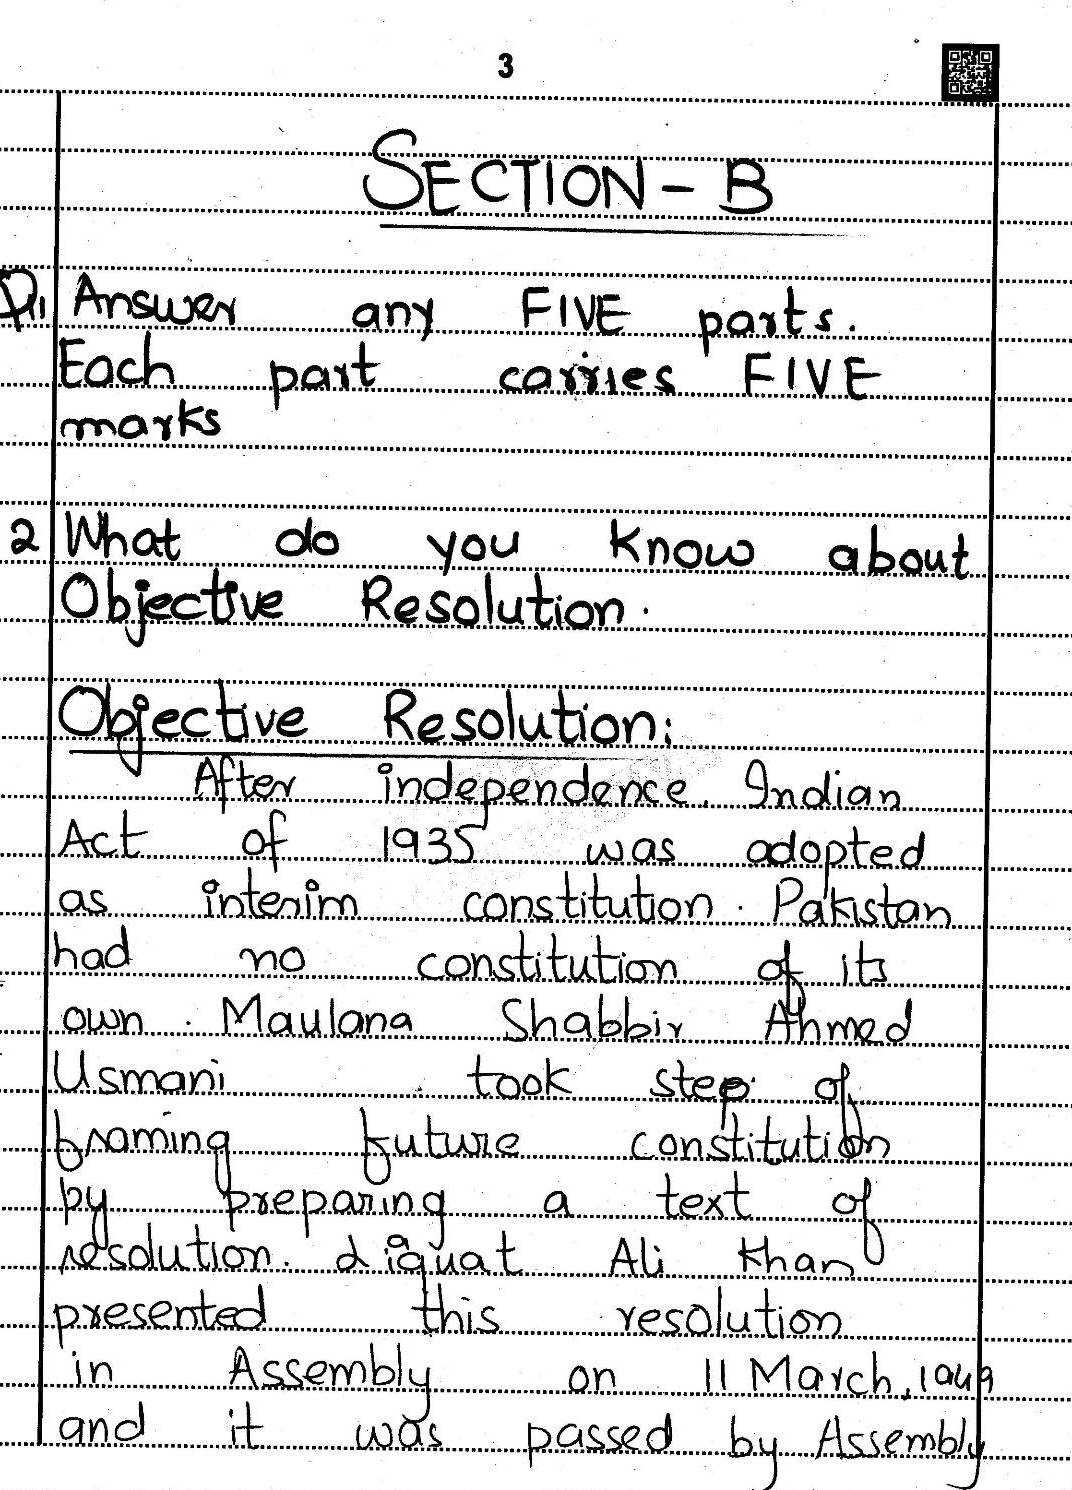 3
SECTION - B
Q1 Answer any FIVE parts.
Each part carries FIVE
marks
2 What do you know about
Objective Resolution.
Objective Resolution:
After independence, Indian
Act of 1935 was adopted
as interim constitution. Pakistan
had no constitution of its
own. Maulana Shabbir Ahmed
Usmani took step of
framing future constitution
by preparing a text of
resolution. Liaquat Ali Khan
presented this resolution
in Assembly on 11 March, 1949
and it was passed by Assembly